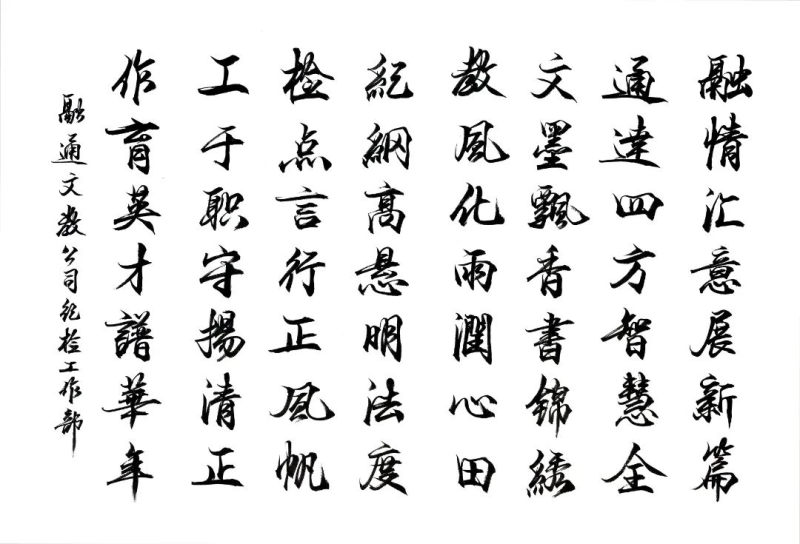 融情汇意展新篇
通達四方智慧全
文墨飄香書錦綉
教風化雨潤心田
紀綱高悬明法度
检点言行正風帆
工于职守揚清正
作育英才譜華年
融通文教公司纪检工作部